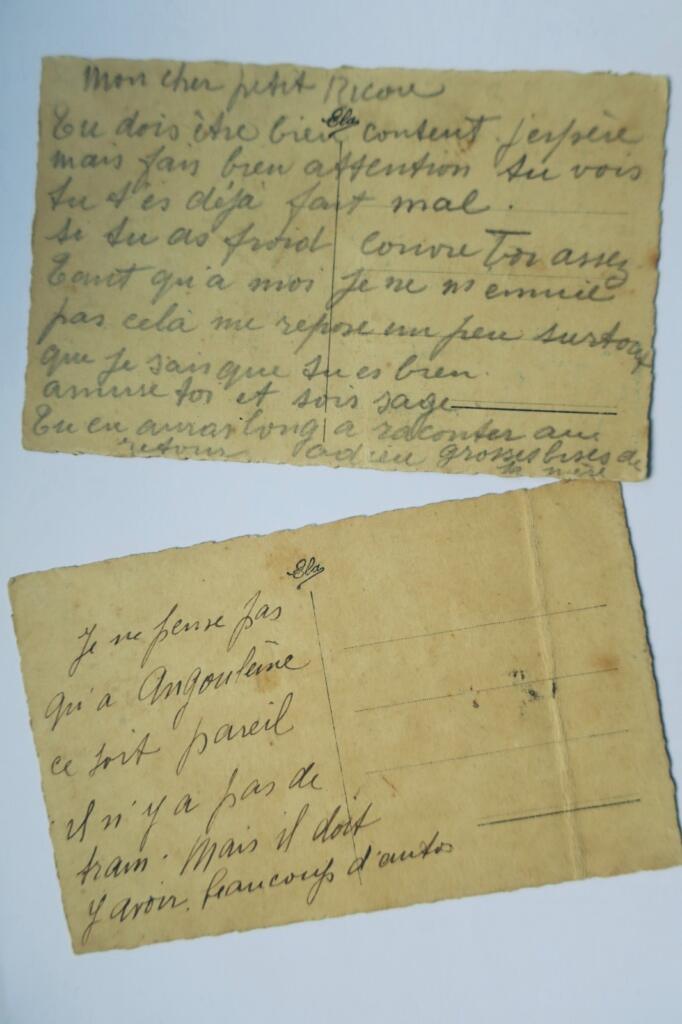 Mon cher petit
Ela
Tu dois être bien content j'espère
mais fais bien attention tu vois
tu t'es déjà fait mal.
si tu as froid couvre toi assez
Tant qu'a moi je ne m'ennuie
pas celà me repose un peu surtout
que je sais que tu es bien.
amuse toi et sois sage
Tu en auras long a raconter au
retour adieu grosses bises de
ta mère
Ela
Je ne pense pas
qu'a Angoulème
ce soit pareil
il n'y a pas de
train. Mais il doit
y avoir beaucoup d'autos